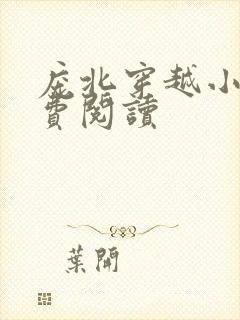 庇北穿越小
費閱讀
葉開